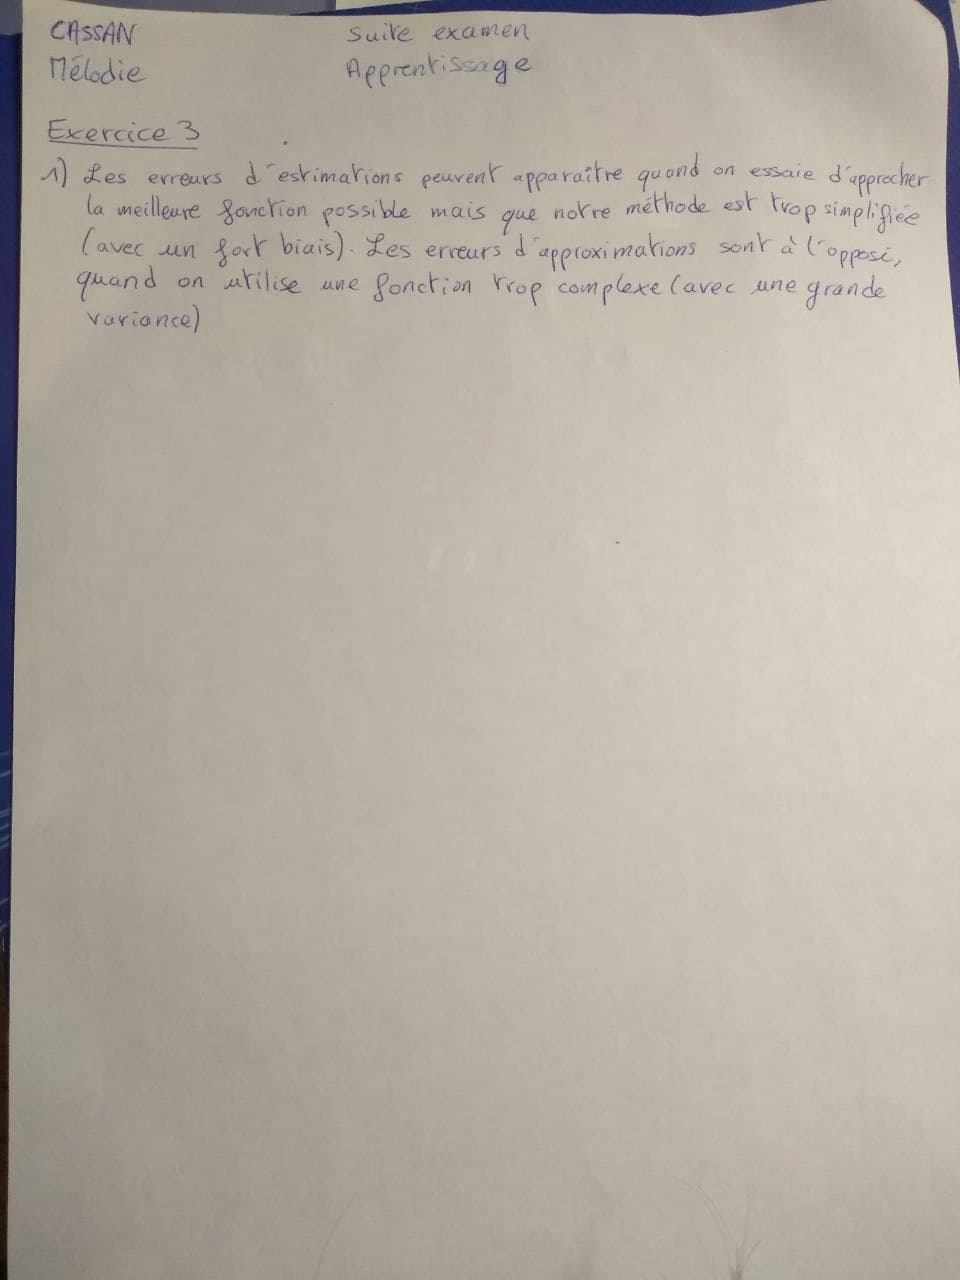 CASSAN Suite examen
Mélodie Apprentissage
Exercice 3
1) Les erreurs d'estimations peuvent apparaître quand on essaie d'approcher
la meilleure fonction possible mais que notre méthode est trop simplifiée
(avec un fort biais). Les erreurs d'approximations sont à l'opposé,
quand on utilise une fonction trop complexe (avec une grande
variance)